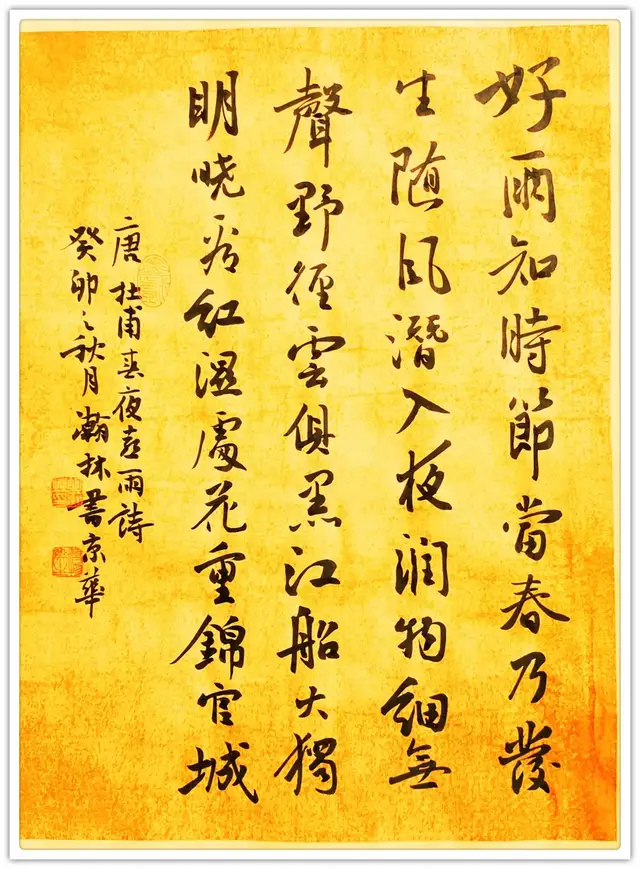 好雨知時節當春乃發
生随风潛入夜润物細無
聲野徑雲俱黑江船火獨
明晓看紅濕處花重錦官城
唐杜甫春夜喜雨詩
癸卯之秋月瀚林書京華